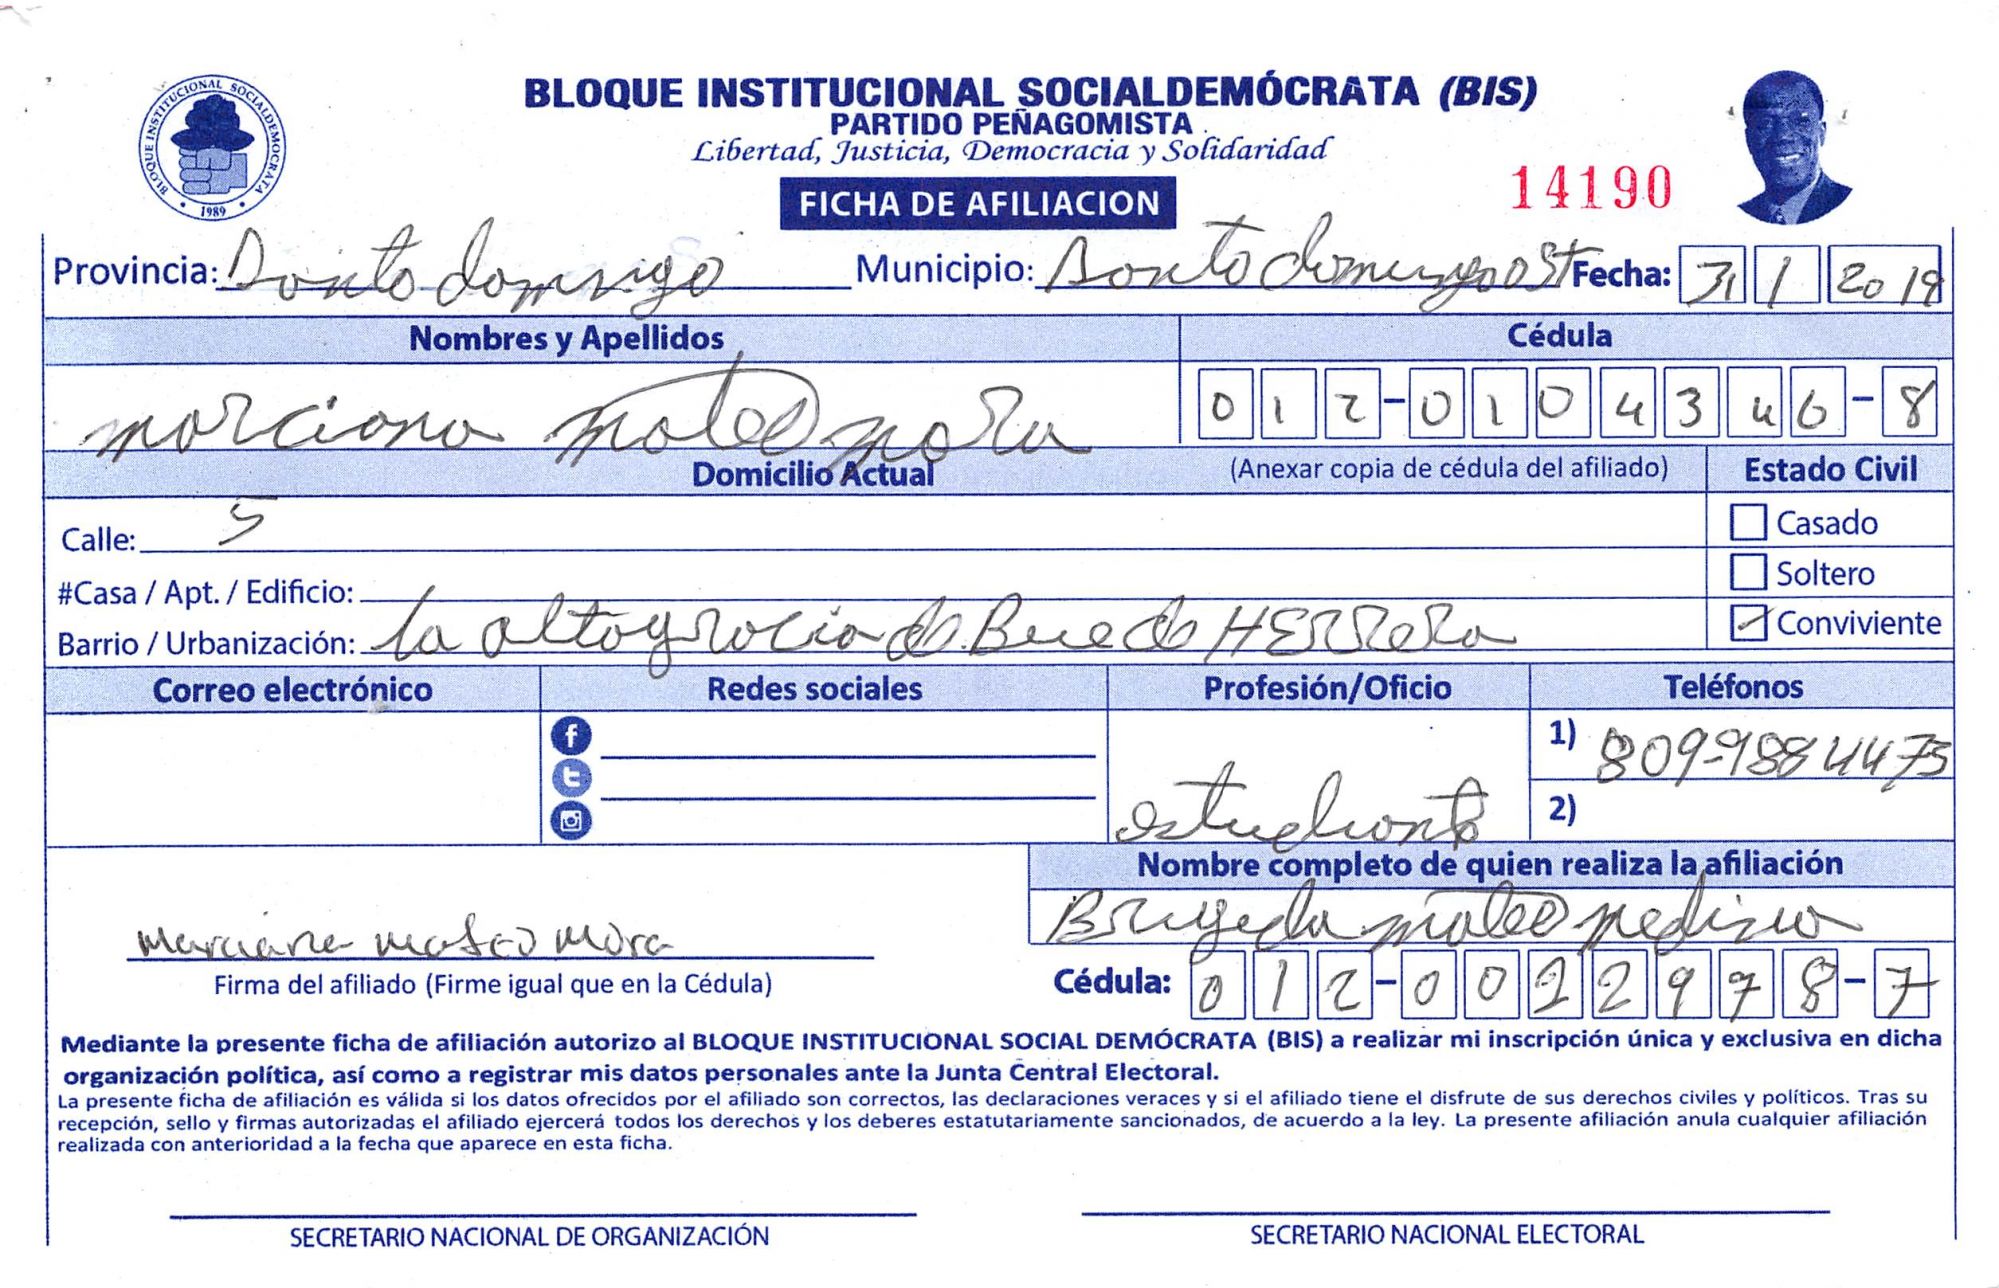 BLOQUE INSTITUCIONAL SOCIALDEMÓCRATA (BIS)
PARTIDO PEÑAGOMISTA
Libertad, Justicia, Democracia y Solidaridad
BLOQUE INSTITUCIONAL SOCIALDEMOCRATA
• 1989 •
14190
FICHA DE AFILIACION
Provincia: Santo domingo Municipio: Santo domingo ost Fecha: 31 1 2019
Nombres y Apellidos Cédula
marciana mateo mora 012-0104346-8
Domicilio Actual (Anexar copia de cédula del afiliado) Estado Civil
Calle: 5 Casado
#Casa / Apt. / Edificio: Soltero
Barrio / Urbanización: la altagracia de HERRERA Conviviente
Correo electrónico Redes sociales Profesión/Oficio Teléfonos
1) 809-9884473
estudiante 2)
Nombre completo de quien realiza la afiliación
mateo medina
marciana mateo mora
Firma del afiliado (Firme igual que en la Cédula) Cédula: 012-0022978-7
Mediante la presente ficha de afiliación autorizo al BLOQUE INSTITUCIONAL SOCIAL DEMÓCRATA (BIS) a realizar mi inscripción única y exclusiva en dicha
organización política, así como a registrar mis datos personales ante la Junta Central Electoral.
La presente ficha de afiliación es válida si los datos ofrecidos por el afiliado son correctos, las declaraciones veraces y si el afiliado tiene el disfrute de sus derechos civiles y políticos. Tras su
recepción, sello y firmas autorizadas el afiliado ejercerá todos los derechos y los deberes estatutariamente sancionados, de acuerdo a la ley. La presente afiliación anula cualquier afiliación
realizada con anterioridad a la fecha que aparece en esta ficha.
SECRETARIO NACIONAL DE ORGANIZACIÓN SECRETARIO NACIONAL ELECTORAL